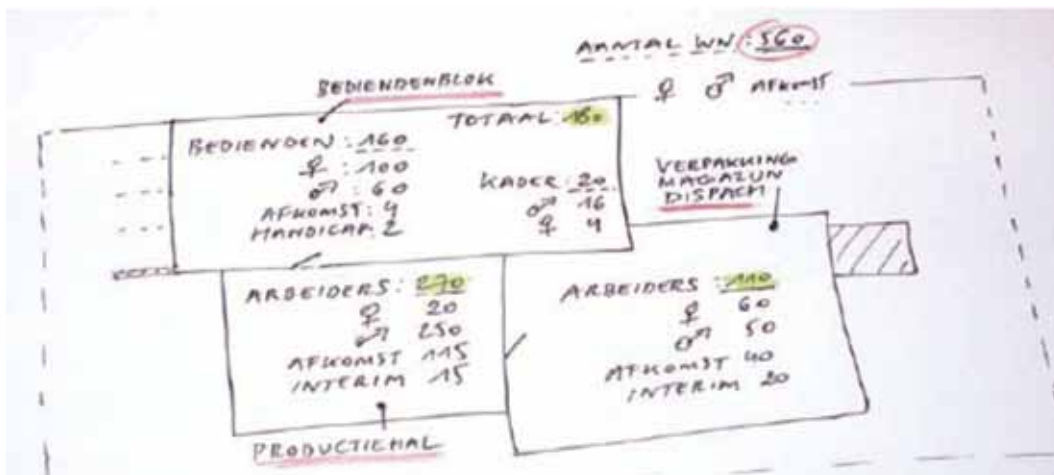 AANTAL WN: 560
♀ ♂ AFKOMST
BEDIENDENBLOK
TOTAAL: 180
BEDIENDEN: 160
♀: 100
♂: 60
AFKOMST: 4
HANDICAP: 2
KADER: 20
♂ 16
♀ 4
VERPAKKING
MAGAZIJN
DISPACH
ARBEIDERS: 270
♀ 20
♂ 250
AFKOMST 115
INTERIM 15
PRODUCTIEHAL
ARBEIDERS: 110
♀ 60
♂ 50
AFKOMST 40
INTERIM 20